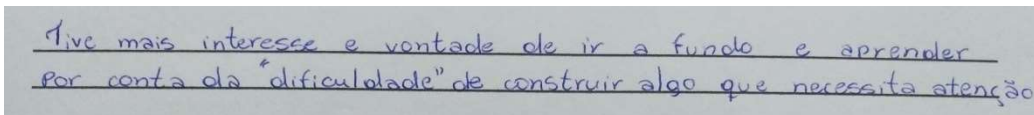 Tive mais interesse e vontade de ir a fundo e aprender
por conta da "dificuldade" de construir algo que necessita atenção